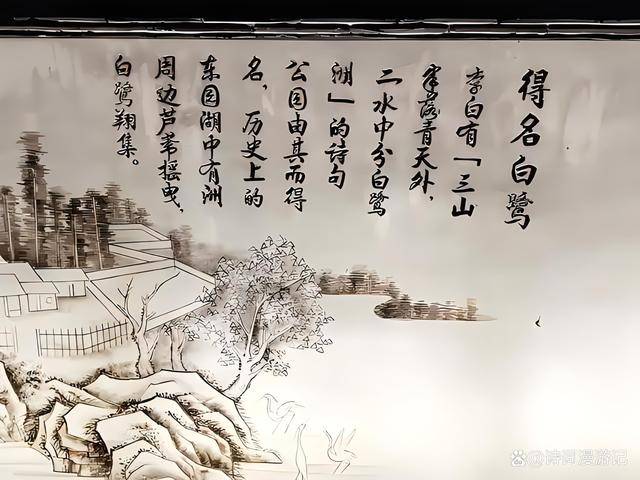 得名白鹭
李白有「三山
半落青天外，
二水中分白鹭
洲」的诗句
公园由其而得
名，历史上的
东园湖中有洲
周边芦苇摇曳，
白鹭翔集。
诗词漫游记